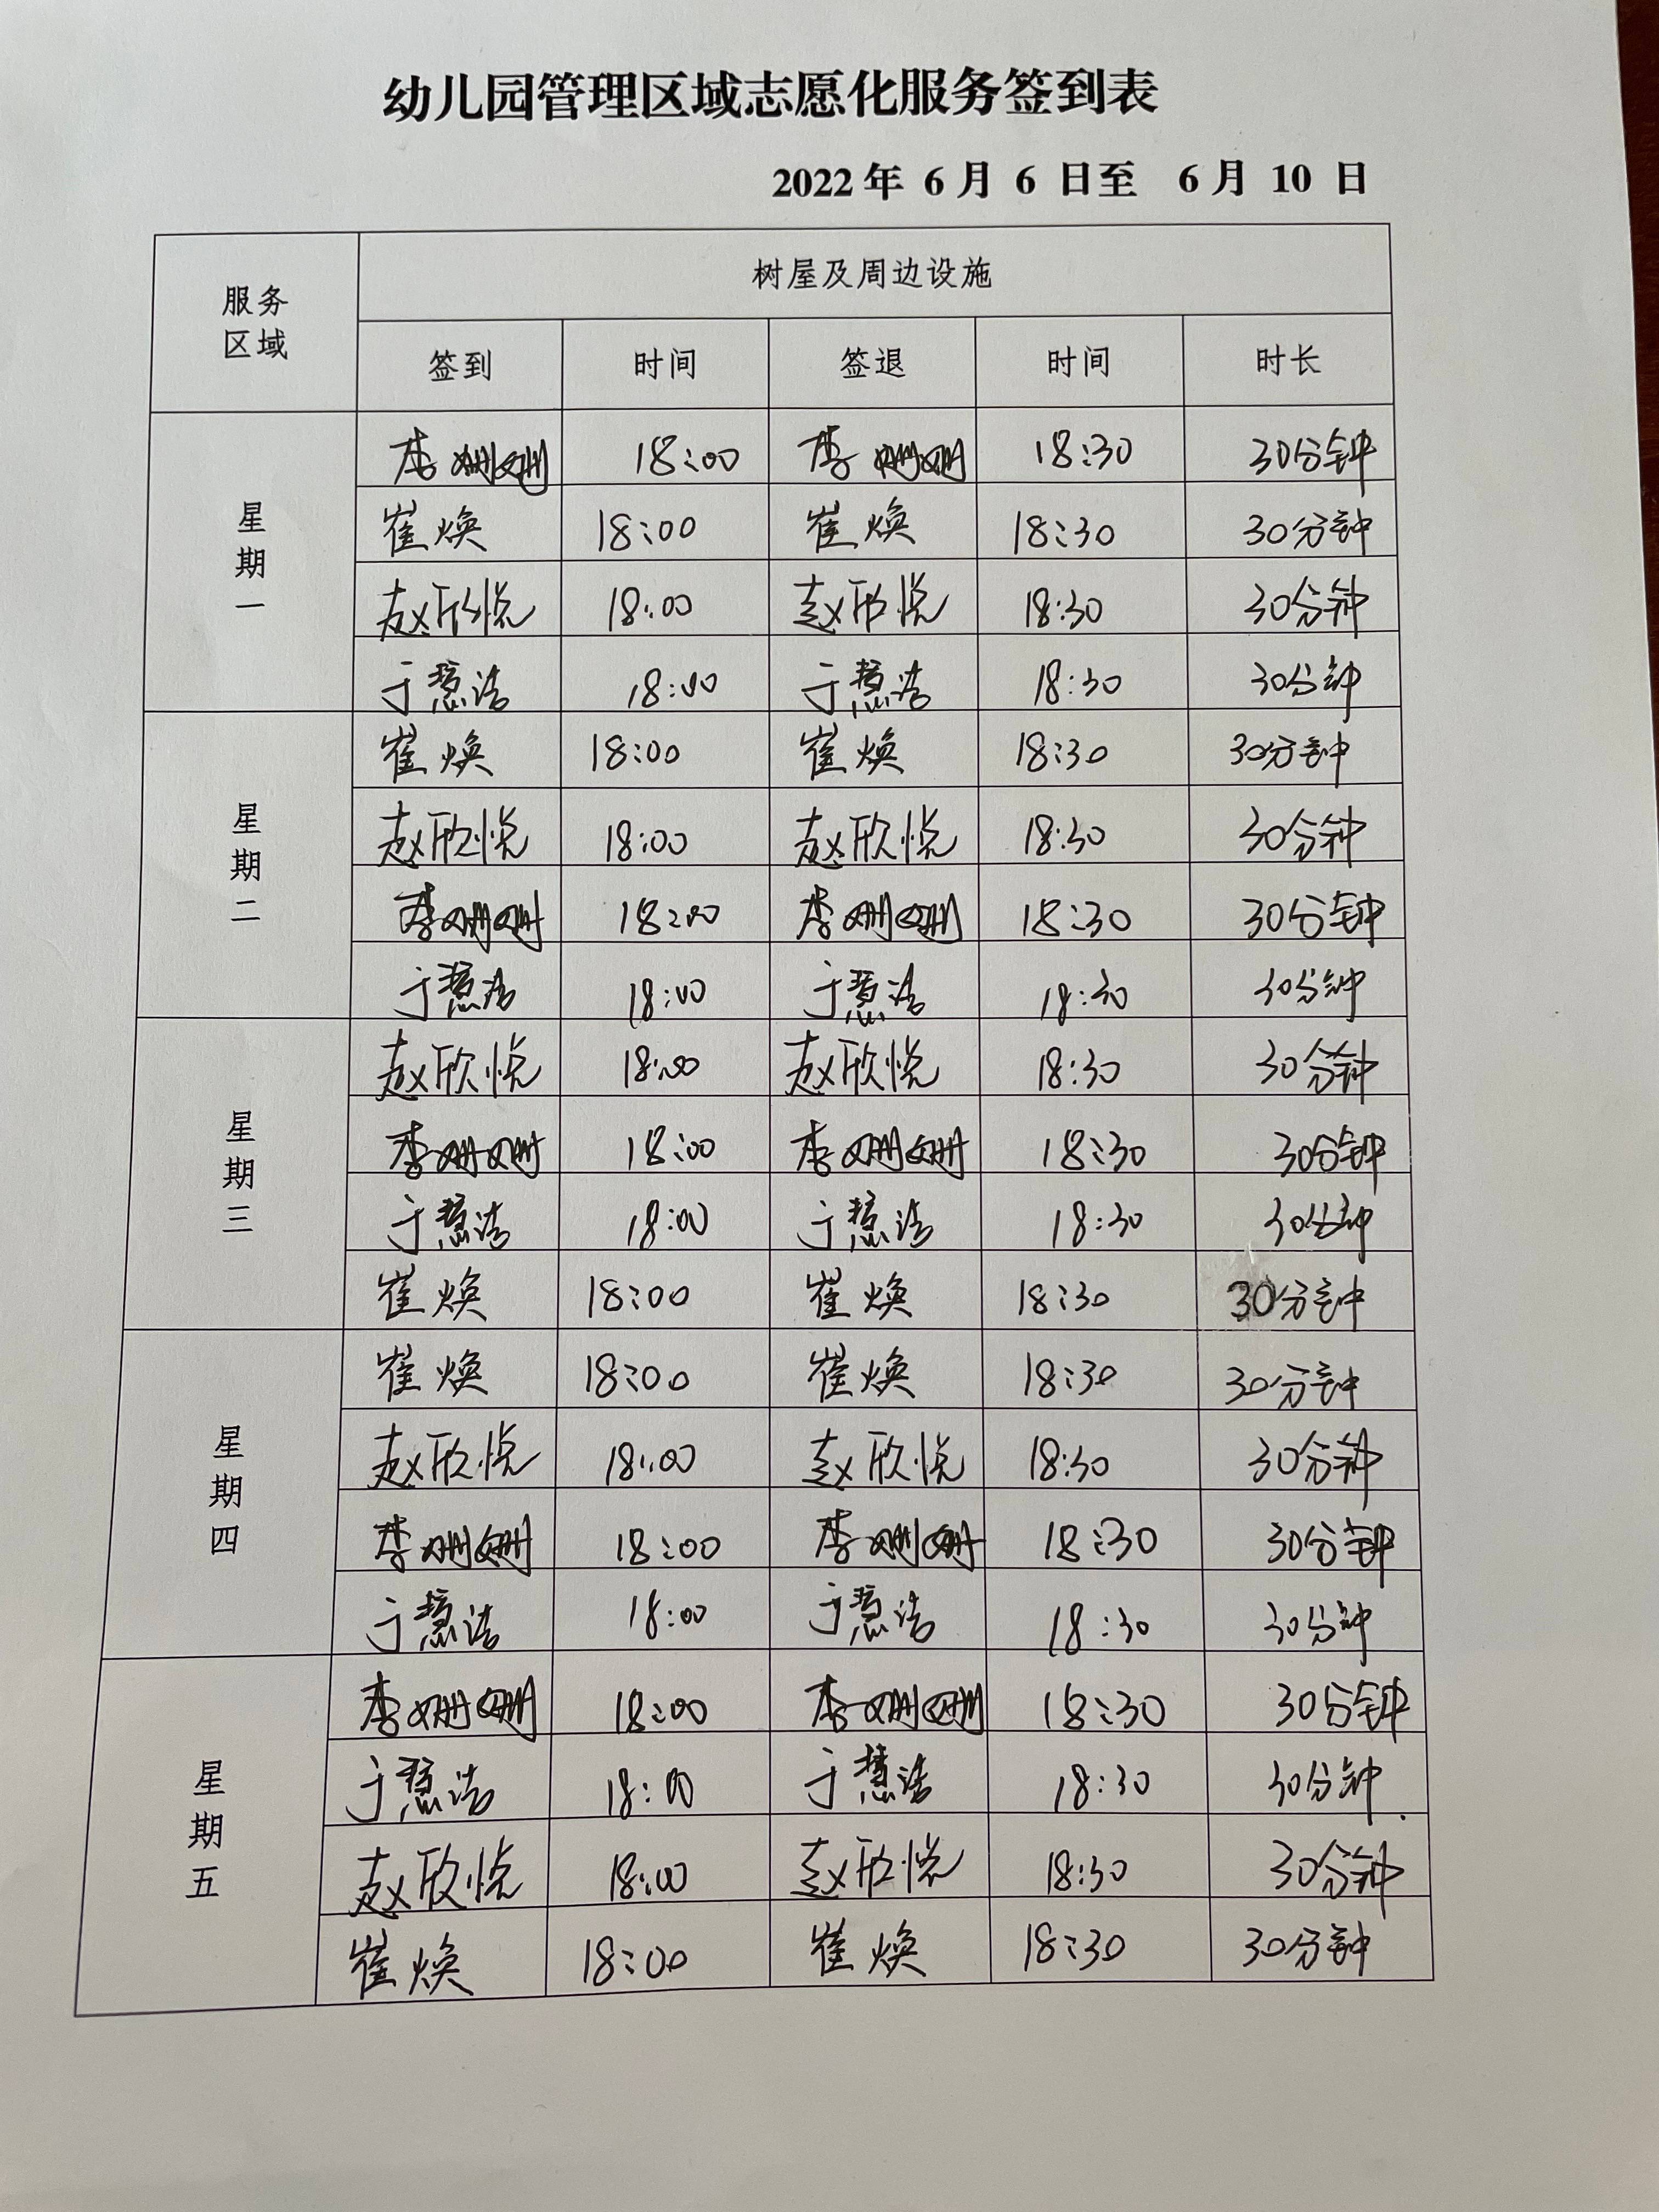 幼儿园管理区域志愿化服务签到表
2022年 6月 6 日至 6月 10 日
服务区域 树屋及周边设施
签到 时间 签退 时间 时长
星期一
李姗姗 18:00 李姗姗 18:30 30分钟
崔焕 18:00 崔焕 18:30 30分钟
赵欣悦 18:00 赵欣悦 18:30 30分钟
于慧洁 18:00 于慧洁 18:30 30分钟
星期二
崔焕 18:00 崔焕 18:30 30分钟
赵欣悦 18:00 赵欣悦 18:30 30分钟
李姗姗 18:00 李姗姗 18:30 30分钟
于慧洁 18:00 于慧洁 18:30 30分钟
星期三
赵欣悦 18:00 赵欣悦 18:30 30分钟
李姗姗 18:00 李姗姗 18:30 30分钟
于慧洁 18:00 于慧洁 18:30 30分钟
崔焕 18:00 崔焕 18:30 30分钟
星期四
崔焕 18:00 崔焕 18:30 30分钟
赵欣悦 18:00 赵欣悦 18:30 30分钟
李姗姗 18:00 李姗姗 18:30 30分钟
于慧洁 18:00 于慧洁 18:30 30分钟
星期五
李姗姗 18:00 李姗姗 18:30 30分钟
于慧洁 18:00 于慧洁 18:30 30分钟
赵欣悦 18:00 赵欣悦 18:30 30分钟
崔焕 18:00 崔焕 18:30 30分钟